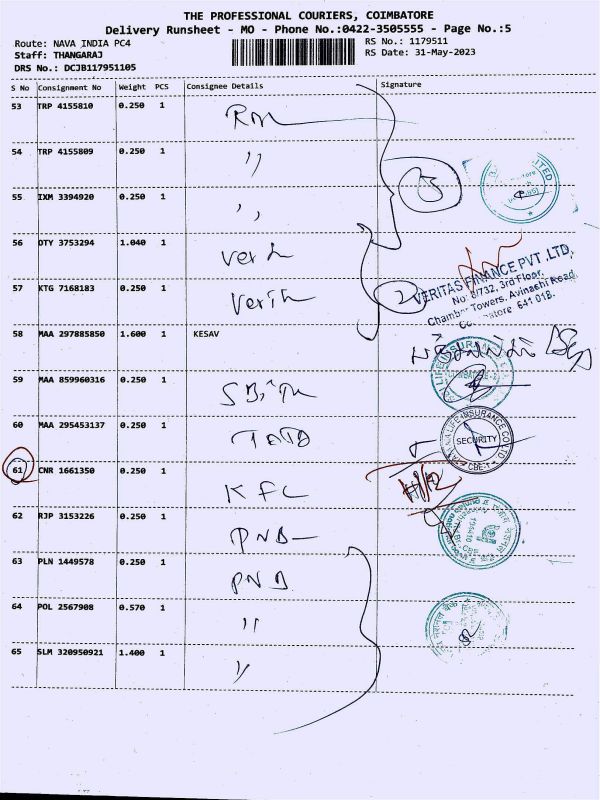 THE PROFESSIONAL COURIERS, COIMBATORE
Delivery Runsheet - MO - Phone No.:0422-3505555 - Page No.:5
Route: NAVA INDIA PC4
RS No.: 1179511
Staff: THANGARAJ
RS Date: 31-May-2023
DRS No.: DCJB117951105
S No Consignment No Weight PCS Consignee Details Signature
53 TRP 4155810 0.250 1
54 TRP 4155809 0.250 1 〃
55 IXM 3394920 0.250 1 〃
56 OTY 3753294 1.040 1
57 KTG 7168183 0.250 1
2
VERITAS FINANCE PVT .LTD,
No: 6/732, 3rd Floor,
Chamber Towers, Avinashi Road
641 018.
58 MAA 297885850 1.600 1 KESAV
59 MAA 859960316 0.250 1
LIFE INSURANCE
60 MAA 295453137 0.250 1 TATA
LIFE INSURANCE CO LTD
SECURITY
CBE-1
61 CNR 1661350 0.250 1 KFC
62 RJP 3153226 0.250 1 PNB
63 PLN 1449578 0.250 1 PNB
64 POL 2567908 0.570 1 〃
65 SLM 320950921 1.400 1 〃